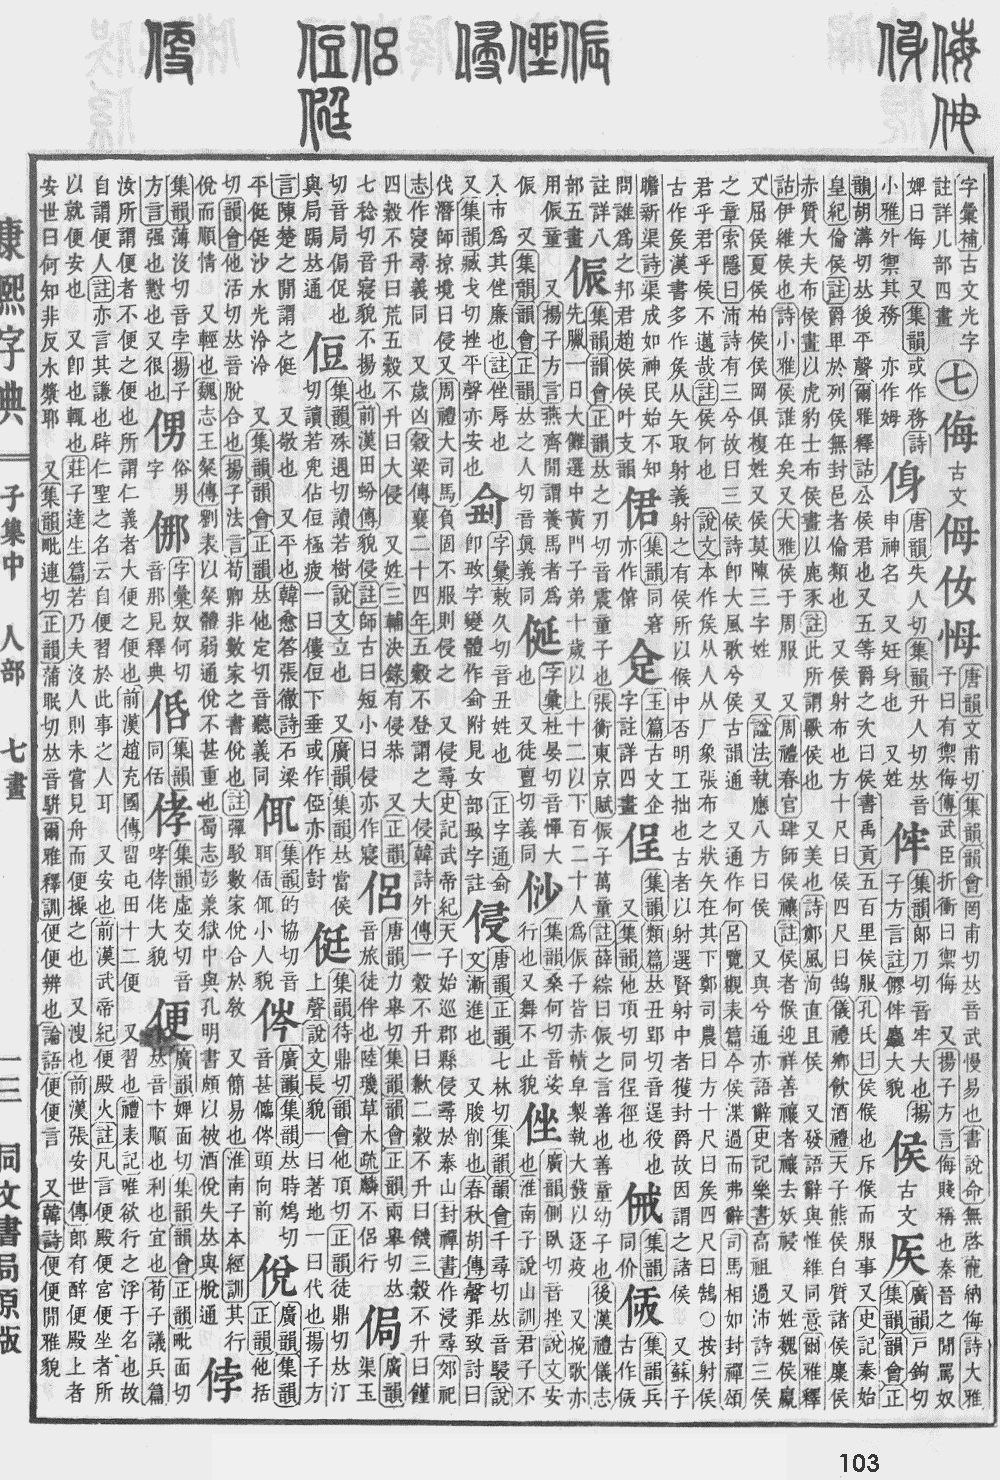 字彙補古文光字註詳儿部四畫 七 侮 古文 㑄 㚢 㛗 唐韻文甫切集韻韻會罔甫切𠀤音武慢易也書說命無啓寵納侮詩大雅予曰有禦侮傳武臣折衝曰禦侮 又揚子方言侮賤稱也秦晉之閒罵奴
婢曰侮 又集韻或作務詩小雅外禦其務 亦作㛗 㑗 唐韻失人切集韻升人切𠀤音申神名 又妊身也 又姓 㑟 集韻郞刀切音牢大也揚子方言註僇㑟麤大貌 侯 古文 𥎦 廣韻戸鉤切集韻韻會正
韻胡溝切𠀤後平聲爾雅釋詁公侯君也又五等爵之次曰侯書禹貢五百里侯服孔氏曰侯候也斥候而服事又史記秦始皇紀倫侯註爵卑於列侯無封邑者倫類也 又侯射布也方十尺曰侯四尺曰鵠儀禮鄕飮酒禮天子熊侯白質諸侯麋侯
赤質大夫布侯畫以虎豹士布侯畫以鹿豕註此所謂獸侯也 又美也詩鄭風洵直且侯 又發語辭與惟維同意爾雅釋詁伊維侯也詩小雅侯誰在矣又大雅侯于周服 又周禮春官肆師侯禳註侯者候迎祥善禳者禳去妖祲 又姓魏侯嬴
又屈侯夏侯柏侯侯岡俱複姓又侯莫陳三字姓 又諡法執應八方曰侯 又與兮通亦語辭史記樂書高祖過沛詩三侯之章索隱曰沛詩有三兮故曰三侯詩卽大風歌兮侯古韻通 又通作何呂覽觀表篇今侯渫過而弗辭司馬相如封禪頌
君乎君乎侯不邁哉註侯何也 說文本作矦从人从厂象張布之狀矢在其下鄭司農曰方十尺曰矦四尺曰鵠○按射侯古作矦漢書多作矦从矢取射義射之有侯所以候中否明工拙也古者以射選賢射中者獲封爵故因謂之諸侯 又蘇子
瞻新渠詩渠成如神民始不知問誰爲之邦君趙侯侯叶支韻 㑺 集韻同窘亦作僒 玉篇古文企字註詳四畫 侱 集韻類篇𠀤丑郢切音逞役也 又集韻他頂切同徎徑也 㑘 集韻同价 集韻兵古作
註詳八部五畫 侲 集韻韻會正韻𠀤之刃切音震童子也張衡東京賦侲子萬童註薛綜曰侲之言善也善童幼子也後漢禮儀志先臘一日大儺選中黃門子弟十歲以上十二以下百二十人爲侲子皆赤幘皁製執大鼗以逐疫 又挽歌亦
用侲童 又揚子方言燕齊閒謂養馬者爲侲 又集韻韻會正韻𠀤之人切音眞義同 字彙杜晏切音憚大也 又徒亶切義同 㑚 集韻桑何切音娑行也又舞不止貌 侳 廣韻側臥切音挫說文安也淮南子說山訓君子不
入市爲其侳廉也註侳辱也 又集韻臧戈切挫平聲亦安也 字彙敕久切音丑姓也 侵 唐韻正韻七林切集韻韻會千尋切𠀤音駸說文漸進也 又朘削也春秋胡傳聲罪致討曰
伐潛師掠境曰侵 又周禮大司馬負固不服則侵之 又侵尋史記武帝紀天子始巡郡縣侵尋於泰山封禪書作浸尋郊祀志作寖尋義同 又歲凶穀梁傳襄二十四年五穀不登謂之大侵韓詩外傳一穀不升曰歉二穀不升曰饑三穀不升曰饉
四穀不升曰荒五穀不升曰大侵 又姓三輔決錄有侵恭 又正韻亦作寢七稔切音寢貌不揚也前漢田蚡傳貌侵註師古曰短小曰侵 侶 唐韻力舉切集韻韻會正韻兩舉切𠀤音旅徒伴也陸璣草木疏麟不侶行 侷 廣韻渠玉
切音局侷促也與局跼𠀤通 侸 集韻殊遇切讀若樹說文立也 又廣韻集韻𠀤當侯切讀若兜佔侸極疲一曰僂侸下垂或作㑽亦作尌 侹 集韻待鼎切韻會他頂切正韻徒鼎切𠀤汀上聲說文長貌一曰著地一曰代也揚子方
言陳楚之閒謂之侹 又敬也 又平也韓愈答張徹詩石梁平侹侹沙水光泠泠 又集韻韻會正韻𠀤他定切音聽義同 㑙 集韻的協切音聑㑙小人貌 廣韻集韻𠀤時鴆切音甚頭向前 侻 廣韻集韻正韻他括
切韻會他活切𠀤音脫合也揚子法言荀卿非數家之書侻也註彈駁數家侻合於敎 又簡易也淮南子本經訓其行侻而順情 又輕也魏志王粲傳劉表以粲體弱通侻不甚重也蜀志彭羕獄中與孔明書頗以被酒侻失𠀤與脫通 㑣
集韻薄沒切音孛揚子方言强也懟也又很也 俗男字 㑚 字彙奴何切音那見釋典 㑻 集韻同佸 侾 集韻虛交切音哮侾佬大貌 便 廣韻婢面切集韻韻會正韻毗面切𠀤音卞順也利也宜也荀子議兵篇
汝所謂便者不便之便也所謂仁義者大便之便也前漢趙充國傳留屯田十二便 又習也禮表記唯欲行之浮于名也故自謂便人註亦言其謙也辟仁聖之名云自便習於此事之人耳 又安也前漢武帝紀便殿火註凡言便殿便宮便坐者所
以就便安也 又卽也輒也莊子達生篇若乃夫沒人則未嘗見舟而便操之也 又溲也前漢張安世傳郞有醉便殿上者安世曰何知非反水漿耶 又集韻毗連切正韻蒲眠切𠀤音騈爾雅釋訓便便辨也論語便便言 又韓詩便便閒雅貌
康熙字典 子集中 人部 七畫 一三 同文書局原版
103